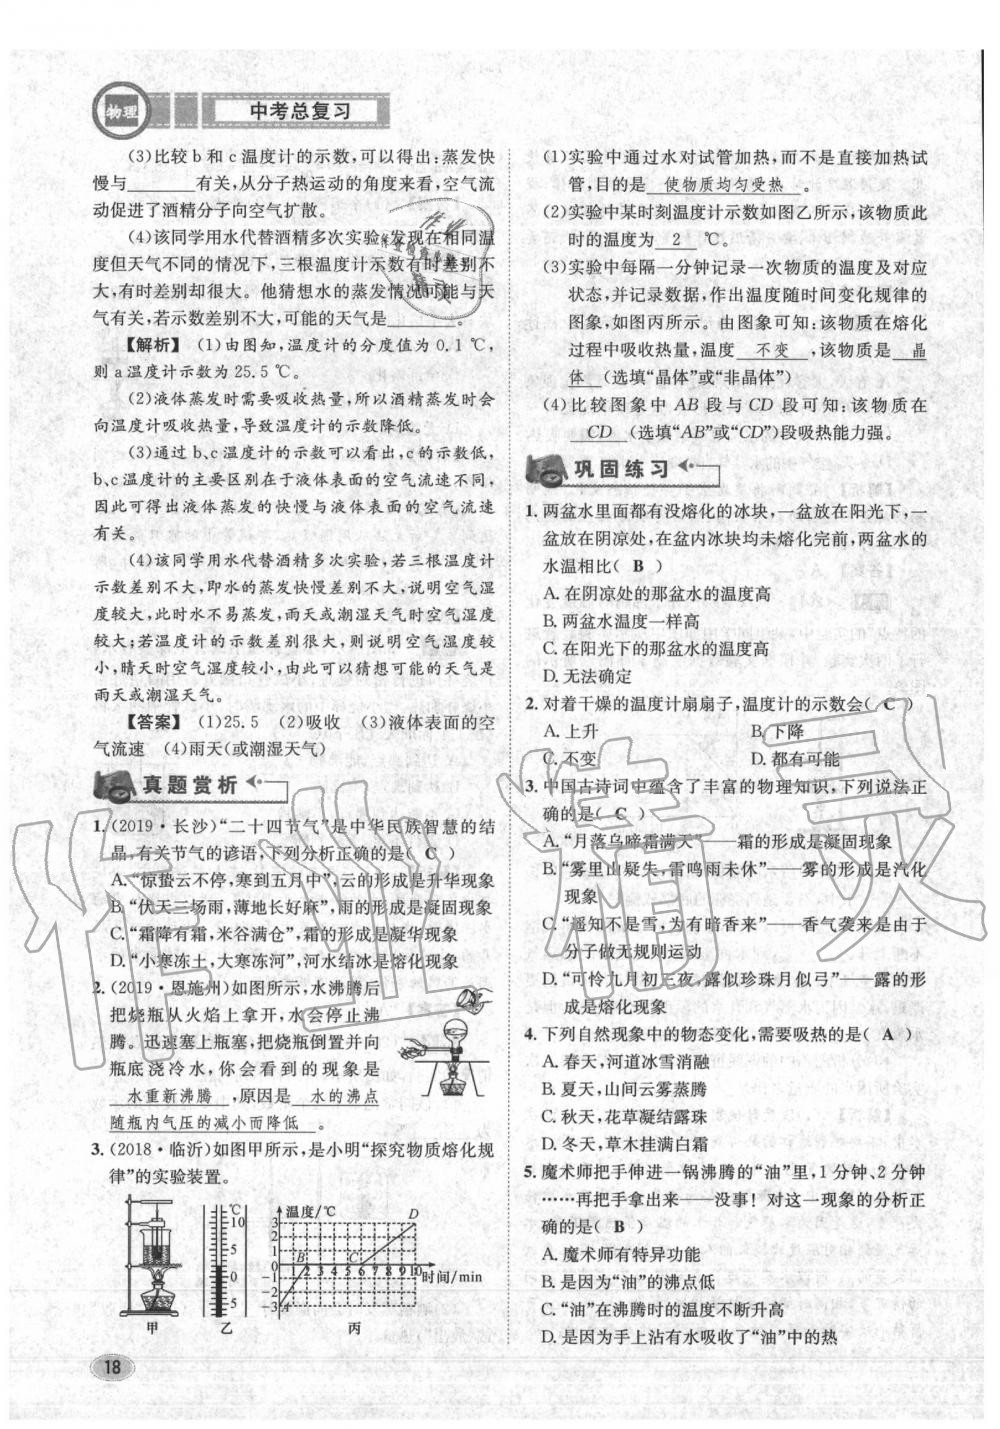 物理
中考总复习
(3)比较 b 和 c 温度计的示数,可以得出:蒸发快
慢与________有关,从分子热运动的角度来看,空气流
动促进了酒精分子向空气扩散。
(4)该同学用水代替酒精多次实验,发现在相同温
度但天气不同的情况下,三根温度计示数有时差别不
大,有时差别却很大。他猜想水的蒸发情况可能与天
气有关,若示数差别不大,可能的天气是________。
【解析】 (1)由图知,温度计的分度值为 0.1 ℃,
则 a 温度计示数为 25.5 ℃。
(2)液体蒸发时需要吸收热量,所以酒精蒸发时会
向温度计吸收热量,导致温度计的示数降低。
(3)通过 b、c 温度计的示数可以看出,c 的示数低,
b、c 温度计的主要区别在于液体表面的空气流速不同,
因此可得出液体蒸发的快慢与液体表面的空气流速
有关。
(4)该同学用水代替酒精多次实验,若三根温度计
示数差别不大,即水的蒸发快慢差别不大,说明空气湿
度较大,此时水不易蒸发,雨天或潮湿天气时空气湿度
较大;若温度计的示数差别很大,则说明空气湿度较
小,晴天时空气湿度较小,由此可以猜想可能的天气是
雨天或潮湿天气。
【答案】 (1)25.5 (2)吸收 (3)液体表面的空
气流速 (4)雨天(或潮湿天气)
真题赏析
1.(2019·长沙)“二十四节气”是中华民族智慧的结
晶,有关节气的谚语,下列分析正确的是( C )
A.“惊蛰云不停,寒到五月中”,云的形成是升华现象
B.“伏天三场雨,薄地长好麻”,雨的形成是凝固现象
C.“霜降有霜,米谷满仓”,霜的形成是凝华现象
D.“小寒冻土,大寒冻河”,河水结冰是熔化现象
2.(2019·恩施州)如图所示,水沸腾后
把烧瓶从火焰上拿开,水会停止沸
腾。迅速塞上瓶塞,把烧瓶倒置并向
瓶底浇冷水,你会看到的现象是
水重新沸腾 ,原因是 水的沸点
随瓶内气压的减小而降低 。
3.(2018·临沂)如图甲所示,是小明“探究物质熔化规
律”的实验装置。
℃
10
5
0
5
温度/℃
3
2
1
0
-1
-2
-3
A
B
C
D
1 2 3 4 5 6 7 8 9 10
时间/min
甲
乙
丙
18
(1)实验中通过水对试管加热,而不是直接加热试
管,目的是 使物质均匀受热 。
(2)实验中某时刻温度计示数如图乙所示,该物质此
时的温度为 2 ℃。
(3)实验中每隔一分钟记录一次物质的温度及对应
状态,并记录数据,作出温度随时间变化规律的
图象,如图丙所示。由图象可知:该物质在熔化
过程中吸收热量,温度 不变 ,该物质是 晶
体 (选填“晶体”或“非晶体”)
(4)比较图象中 AB 段与 CD 段可知:该物质在
CD (选填“AB”或“CD”)段吸热能力强。
巩固练习
1.两盆水里面都有没熔化的冰块,一盆放在阳光下,一
盆放在阴凉处,在盆内冰块均未熔化完前,两盆水的
水温相比( B )
A.在阴凉处的那盆水的温度高
B.两盆水温度一样高
C.在阳光下的那盆水的温度高
D.无法确定
2.对着干燥的温度计扇扇子,温度计的示数会( C )
A.上升 B.下降
C.不变 D.都有可能
3.中国古诗词中蕴含了丰富的物理知识,下列说法正
确的是( C )
A.“月落乌啼霜满天”——霜的形成是凝固现象
B.“雾里山疑失,雷鸣雨未休”——雾的形成是汽化
现象
C.“遥知不是雪,为有暗香来”——香气袭来是由于
分子做无规则运动
D.“可怜九月初三夜,露似珍珠月似弓”——露的形
成是熔化现象
4.下列自然现象中的物态变化,需要吸热的是( A )
A.春天,河道冰雪消融
B.夏天,山间云雾蒸腾
C.秋天,花草凝结露珠
D.冬天,草木挂满白霜
5.魔术师把手伸进一锅沸腾的“油”里,1 分钟、2 分钟
……再把手拿出来——没事!对这一现象的分析正
确的是( B )
A.魔术师有特异功能
B.是因为“油”的沸点低
C.“油”在沸腾时的温度不断升高
D.是因为手上沾有水吸收了“油”中的热
作业精灵